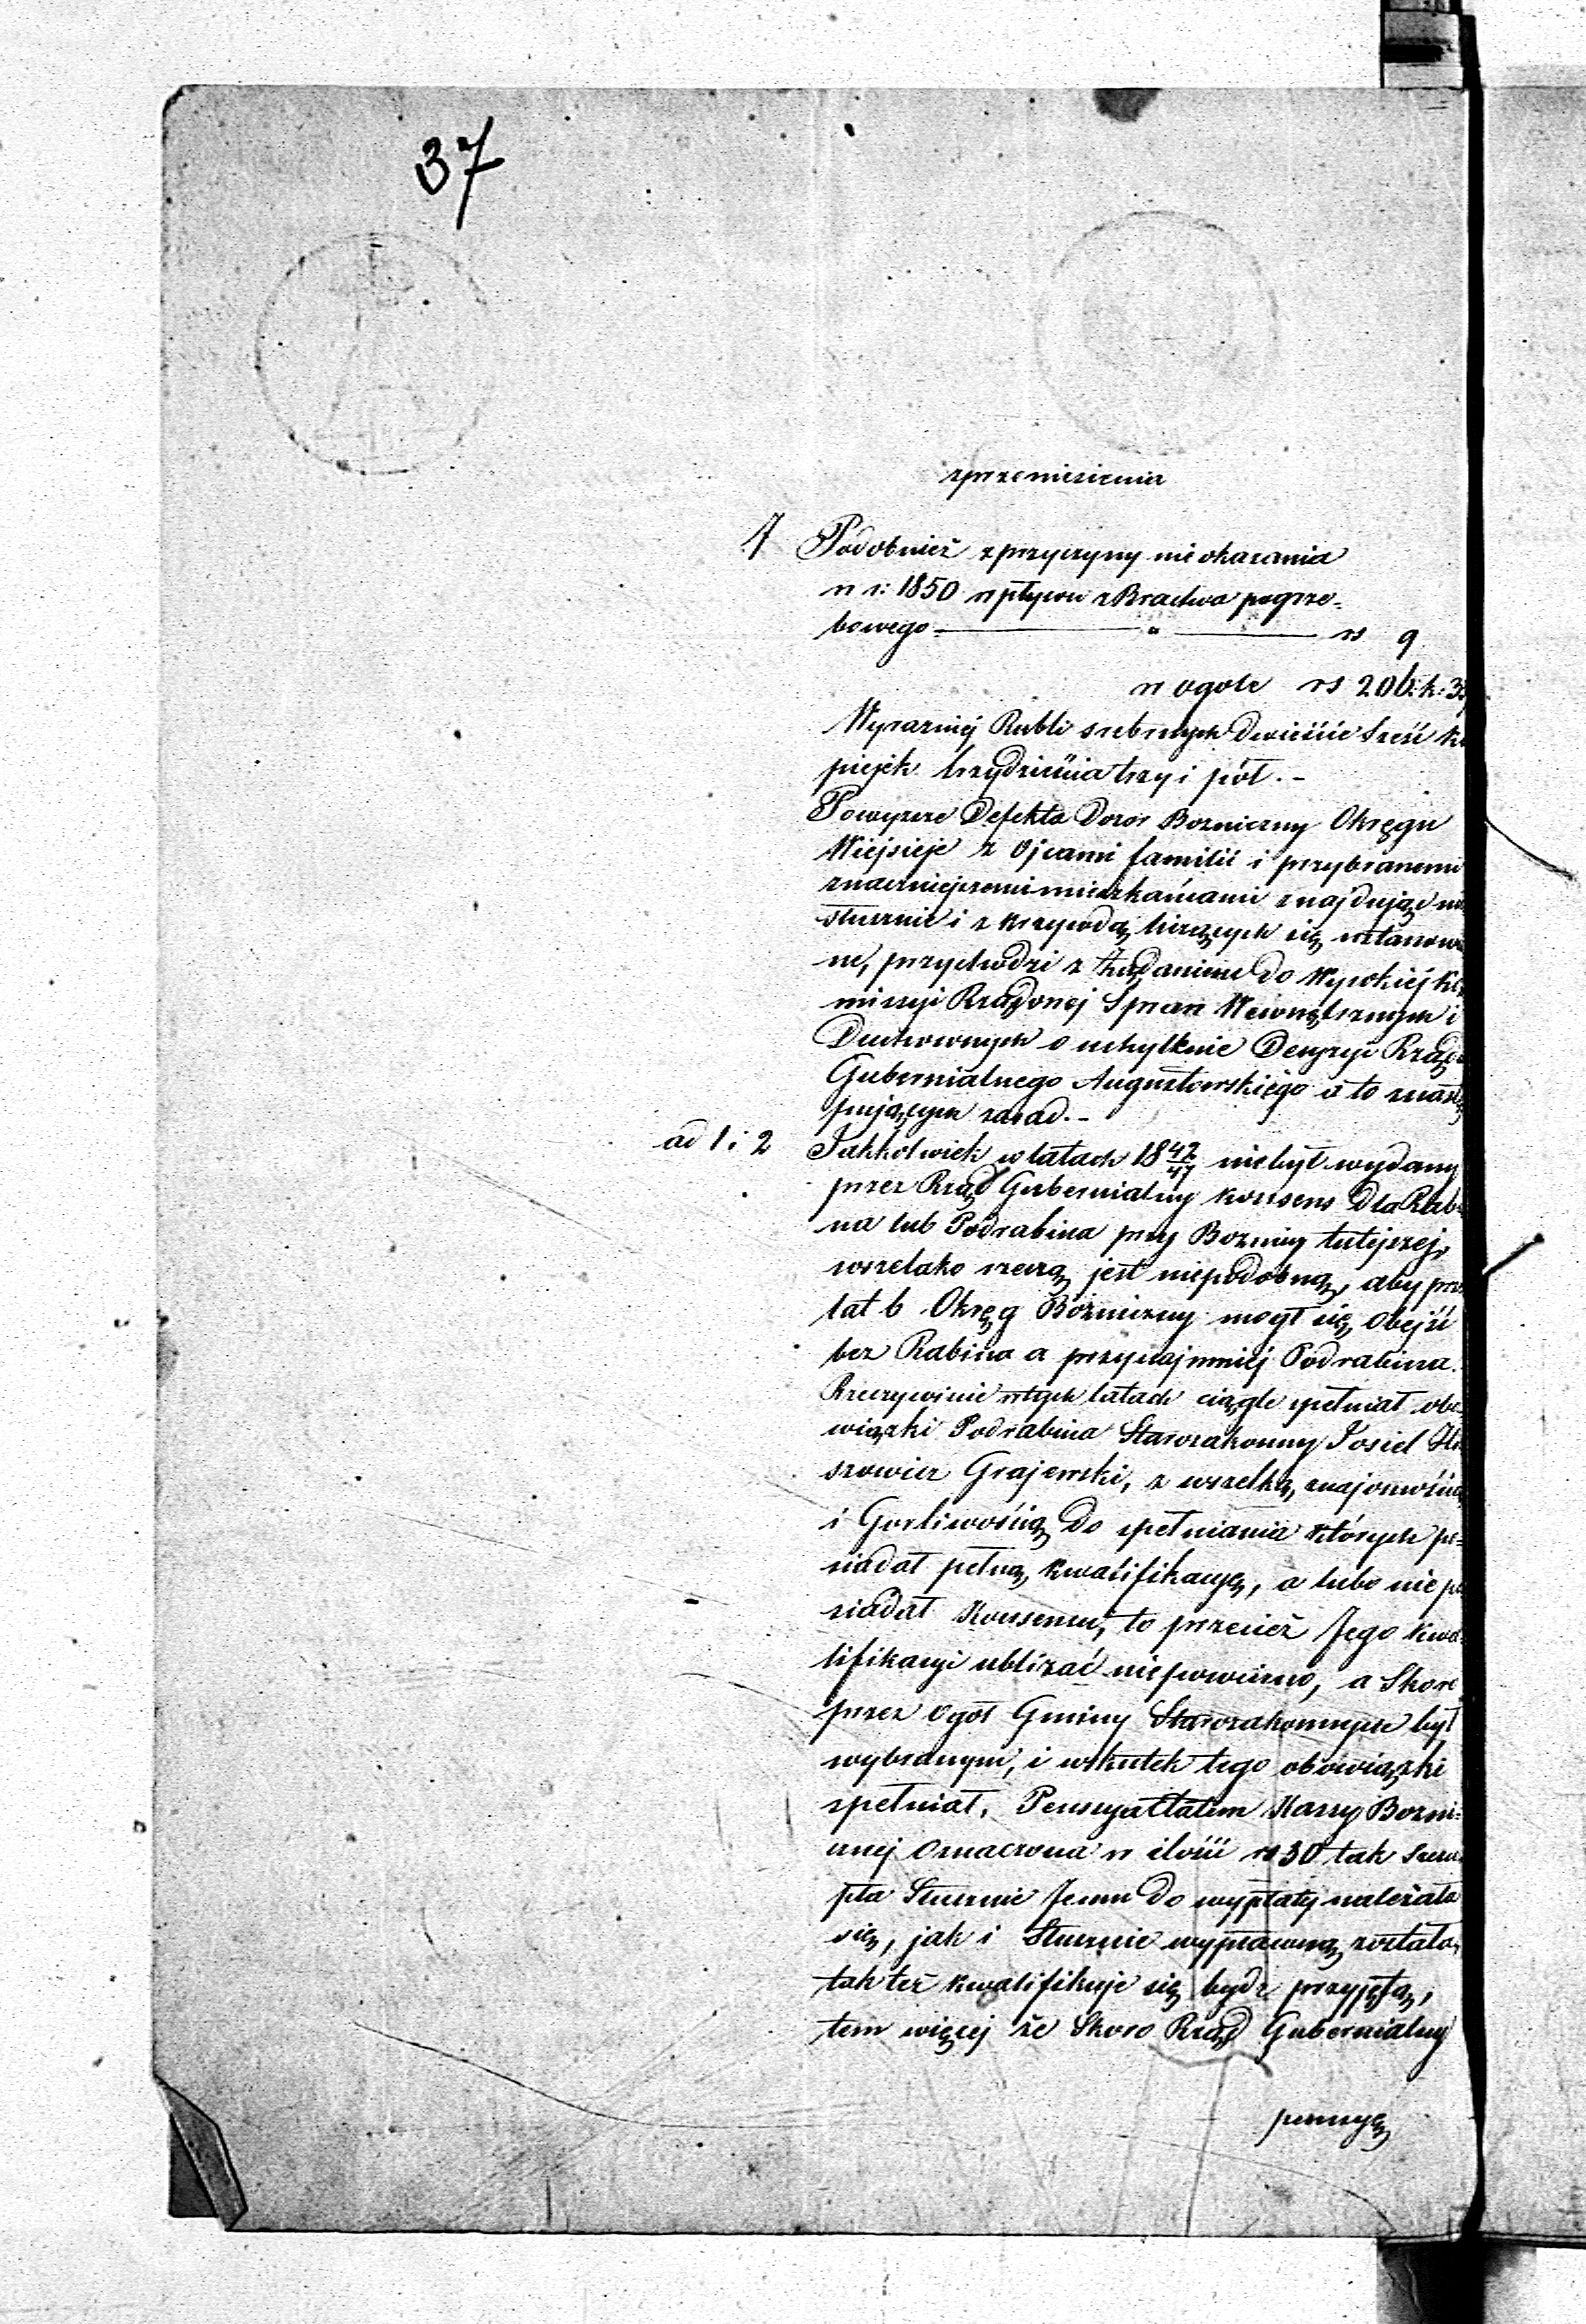 37
zprzeniesienia
7 Podobnież zprzyczyny nieokazania
w r: 1850 wpływu z Bractwa pogrze-
bowego — " — rs 9
w ogóle rs 206. k: 33
Wyrazniej Rubli srebrnych Dwieście Sześć Ko
piejek trzydzieścia trzy i pół. -
Powyzsze Defekta Dozór Bozniczny Okręgu
Wiejsieje z Ojcami familii i przybranemi
znaczniejszemi mieszkańcami znajdując nie
słusznie i z krzywdą liczących się ustanowio
ne, przychodzi z żądaniem do Wysokiej Ko
missyi Rządowej Spraw Wewnętrznych i
Duchownych o uchylenie Decyzyi Rządu
Gubernialnego Augustowskiego a to znastę
pujących zasad. -
ad 1 i 2 Jakkolwiek w latach 1842/47 niebył wydany
przez Rząd Gubernialny konsens dla Rabi
na lub Podrabina przy Boznicy tutejszej,
wszelako rzeczą jest niepodobną, aby przez
lat 6 Okręg Bożniczny mógł się obejść
bez Rabina a przynajmniej Podrabina.
Rzeczywiście wtych latach ciągle spełniał obo
wiązki Podrabina Starozakonny Josiel
szowicz Grajewski, z wszelką znajomością
i Gorliwością do spełniania których po-
siadał pełną kwalifikacyę, a lubo nie po
siadał Konsensu, to przecież Jego kwa
lifikacyi ubliżać niepowinno, a Skoro
przez ogół Gminy Starozakonnych był
wybranym, i wskutek tego obowiązki
spełniał, Pensya Etatem Kassy Bozni-
cznej oznaczona w ilości rs 30 tak szczu
pła Słusznie Jemu do wypłaty należała
się, jak i Słusznie wyprawną została,
tak też kwalifikuje się bydz przyjętą,
tem więcej że Skoro Rząd Gubernialny
pensyę